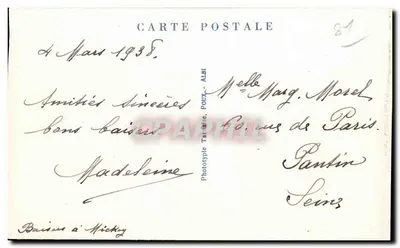 CARTE POSTALE
81
4 Mars 1938.
Amitiés sincères
bons baisers
Madeleine
Baisers à Mickey
Phototype Tarnaise, Poux - Albi
Melle Marg. Morel
60, rue de Paris.
Pantin
Seine